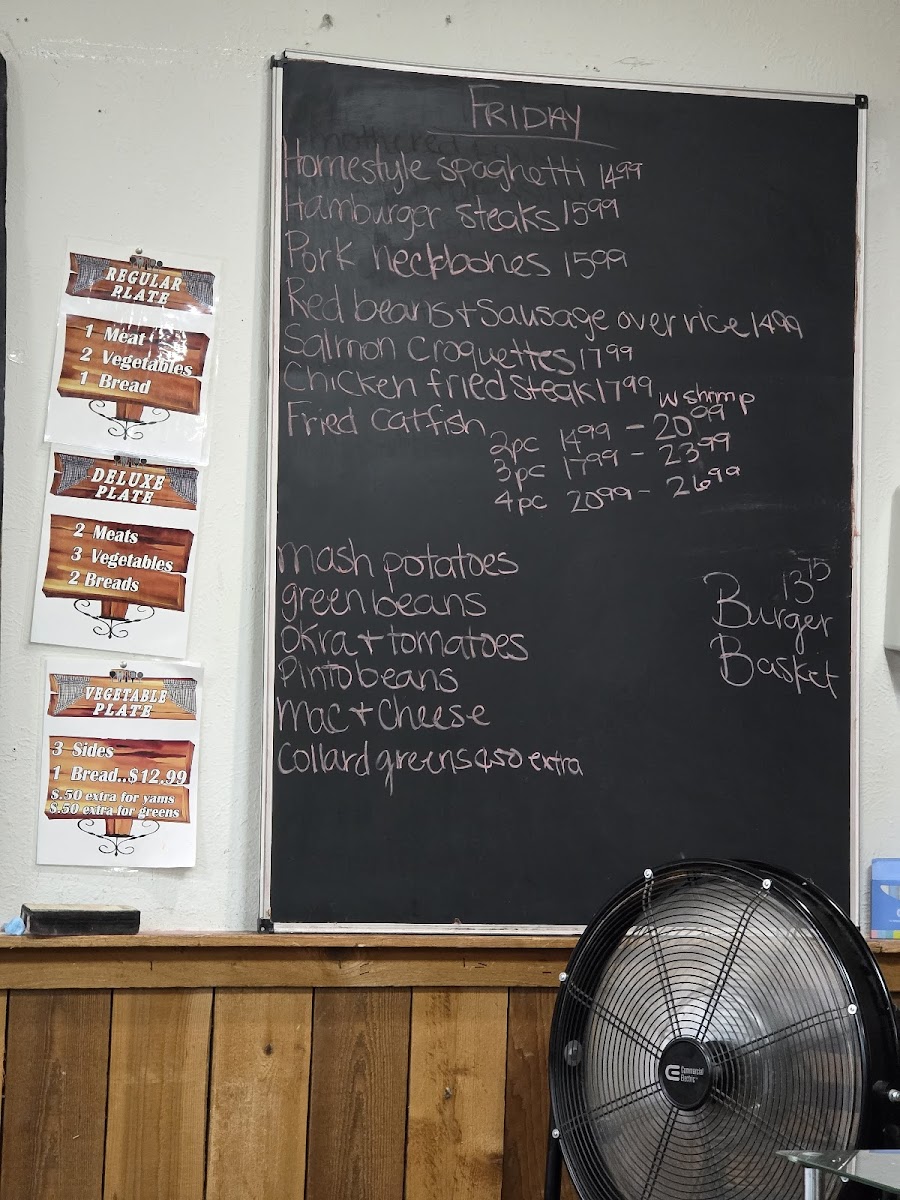 REGULAR
PLATE
1 Meat
2 Vegetables
1 Bread
DELUXE
PLATE
2 Meats
3 Vegetables
2 Breads
VEGETABLE
PLATE
3 Sides
1 Bread..$12.99
$.50 extra for yams
$.50 extra for greens
FRIDAY
Homestyle spaghetti 1499
Hamburger steaks 1599
Pork neckbones 1599
Red beans + Sausage over rice 1499
Salmon Croquettes 1799
Chicken fried steak 1799
w shrimp
Fried Catfish
2pc 1499 - 2099
3pc 1799 - 2399
4pc 2099 - 2699
Mash potatoes
green beans
Okra + tomatoes
Pinto beans
Mac + Cheese
Collard greens ¢50 extra
1375
Burger
Basket
Commercial
Electric